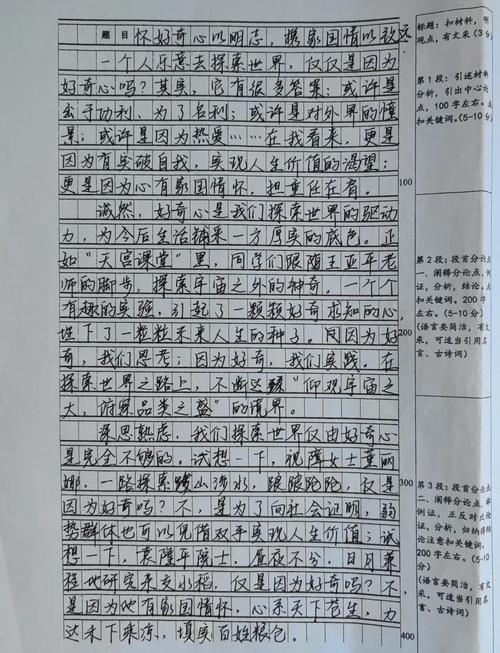 题目 怀好奇心以明志，携家国情以致远。
一个人乐意去探索世界，仅仅是因为
好奇心吗？其实，它有很多答案：或许是
出于功利、为了名利；或许是对外界的憧
憬；或许是因为热爱……在我看来，更是
因为有突破自我，实现人生价值的渴望；
更是因为心有家国情怀，担重任在肩。
100
诚然，好奇心是我们探索世界的驱动
力，为今后生活铺来一方厚实的底色。正
如“天宫课堂”里，同学们跟随王亚平老
师的脚步，探索宇宙之外的神奇。一个个
有趣的实验，引起了一颗颗好奇求知的心，
埋下了一粒粒未来人生的种子。因为好
200
奇，我们思考；因为好奇，我们实践。在
探索世界之路上，不断达臻“仰观宇宙之
大，俯察品类之盛”的境界。
深思熟虑，我们探索世界仅由好奇心
是完全不够的。试想一下，视障女士董丽
娜，一路探索跋山涉水，踉踉跄跄，仅是
300
因为好奇吗？不，是为了向社会证明，弱
势群体也可以凭借双手实现人生价值；试
想一下，袁隆平院士，昼夜不分，日月兼
程地研究杂交水稻，仅是因为好奇吗？不，
是因为他有家国情怀，心系天下苍生，力
达禾下乘凉，填实百姓粮仓。
400
标题：扣材料，明
观点，有文采（3分）
第1段：引述材料
分析，引出中心论
点，100字左右。
扣关键词。(5-10分)
第2段：段首分论点
一、阐释分论点，
例证，分析，结论。
扣关键词。200字
左右。（5-10分）
(语言要简洁，有文
采，可适当引用名
言、古诗词)
第3段：段首分论点
二、阐释分论点，
例证，正反对比论
证，分析，归纳得结论
注意扣关键词。
200字左右。（5-10
分）
(语言要简洁，有文
采，可适当引用名
言、古诗词)